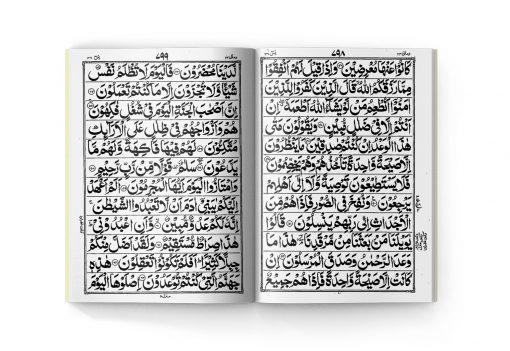 ٧٩٨
كَانُوْا عَنْهَا مُعْرِضِيْنَ ○ وَاِذَا قِيْلَ لَهُمْ اَنْفِقُوْا
مِمَّا رَزَقَكُمُ اللّٰهُ قَالَ الَّذِيْنَ كَفَرُوْا لِلَّذِيْنَ
اٰمَنُوْٓا اَنُطْعِمُ مَنْ لَّوْ يَشَآءُ اللّٰهُ اَطْعَمَهٗٓ اِنْ
اَنْتُمْ اِلَّا فِيْ ضَلٰلٍ مُّبِيْنٍ ○ وَيَقُوْلُوْنَ مَتٰى
هٰذَا الْوَعْدُ اِنْ كُنْتُمْ صٰدِقِيْنَ ○ مَا يَنْظُرُوْنَ
اِلَّا صَيْحَةً وَّاحِدَةً تَاْخُذُهُمْ وَهُمْ يَخِصِّمُوْنَ ○
فَلَا يَسْتَطِيْعُوْنَ تَوْصِيَةً وَّلَآ اِلٰٓى اَهْلِهِمْ
يَرْجِعُوْنَ ○ وَنُفِخَ فِي الصُّوْرِ فَاِذَا هُمْ مِّنَ
الْاَجْدَاثِ اِلٰى رَبِّهِمْ يَنْسِلُوْنَ ○ قَالُوْا
يٰوَيْلَنَا مَنْۢ بَعَثَنَا مِنْ مَّرْقَدِنَا هٰذَا مَا
وَعَدَ الرَّحْمٰنُ وَصَدَقَ الْمُرْسَلُوْنَ ○ اِنْ
كَانَتْ اِلَّا صَيْحَةً وَّاحِدَةً فَاِذَا هُمْ جَمِيْعٌ
٧٩٩
لَّدَيْنَا مُحْضَرُوْنَ ○ فَالْيَوْمَ لَا تُظْلَمُ نَفْسٌ
شَيْئًا وَّلَا تُجْزَوْنَ اِلَّا مَا كُنْتُمْ تَعْمَلُوْنَ ○
اِنَّ اَصْحٰبَ الْجَنَّةِ الْيَوْمَ فِيْ شُغُلٍ فٰكِهُوْنَ ○
هُمْ وَاَزْوَاجُهُمْ فِيْ ظِلٰلٍ عَلَى الْاَرَآئِكِ
مُتَّكِـُٔوْنَ ○ لَهُمْ فِيْهَا فَاكِهَةٌ وَّلَهُمْ مَّا
يَدَّعُوْنَ ○ سَلٰمٌ قَوْلًا مِّنْ رَّبٍّ رَّحِيْمٍ ○
وَامْتَازُوا الْيَوْمَ اَيُّهَا الْمُجْرِمُوْنَ ○ اَلَمْ اَعْهَدْ
اِلَيْكُمْ يٰبَنِيْٓ اٰدَمَ اَنْ لَّا تَعْبُدُوا الشَّيْطٰنَ
اِنَّهٗ لَكُمْ عَدُوٌّ مُّبِيْنٌ ○ وَّاَنِ اعْبُدُوْنِيْ
هٰذَا صِرَاطٌ مُّسْتَقِيْمٌ ○ وَلَقَدْ اَضَلَّ مِنْكُمْ
جِبِلًّا كَثِيْرًا اَفَلَمْ تَكُوْنُوْا تَعْقِلُوْنَ ○ هٰذِهٖ
جَهَنَّمُ الَّتِيْ كُنْتُمْ تُوْعَدُوْنَ ○ اِصْلَوْهَا الْيَوْمَ